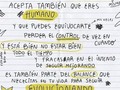 ACEPTA TAMBIÉN QUE ERES
HUMANO
Y QUE PUEDES EQUIVOCARTE
PERDER EL CONTROL DE VEZ EN
CUANDO
Y ESTÁ BIEN NO ESTAR BIEN.
TODO EL TIEMPO
Y FRACASAR EN EL INTENTO
DE SEGUIR MEJORANDO
ES TAMBIÉN PARTE DEL BALANCE QUE
NECESITAS EN TU VIDA PARA SEGUIR
EVOLUCIONANDO